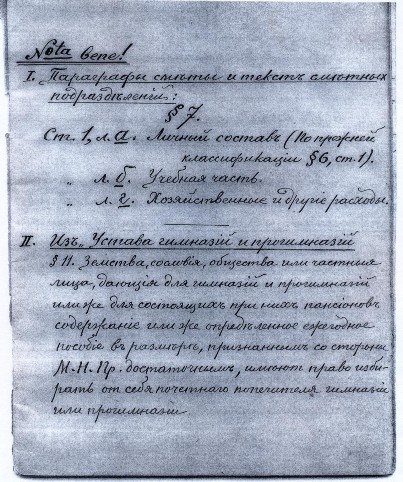 Nota bene!
I. Параграфы смѣты и текстъ смѣтныхъ
подраздѣленій:
§ 7.
Ст. 1, л. а. Личный составъ (по прежней
классификаціи § 6, ст. 1).
„ л. б. Учебная часть.
„ л. г. Хозяйственные и другіе расходы.
II. Изъ „Устава гимназій и прогимназій
§ 11. Земства, сословія, общества или частныя
лица, дающія для гимназій и прогимназій
или же для состоящихъ при нихъ пансіоновъ
содержаніе или же опредѣленное ежегодное
пособіе въ размѣрѣ, признанномъ со стороны
М. Н. Пр. достаточнымъ, имѣютъ право изби-
рать отъ себя почетнаго попечителя гимназіи
или прогимназіи.